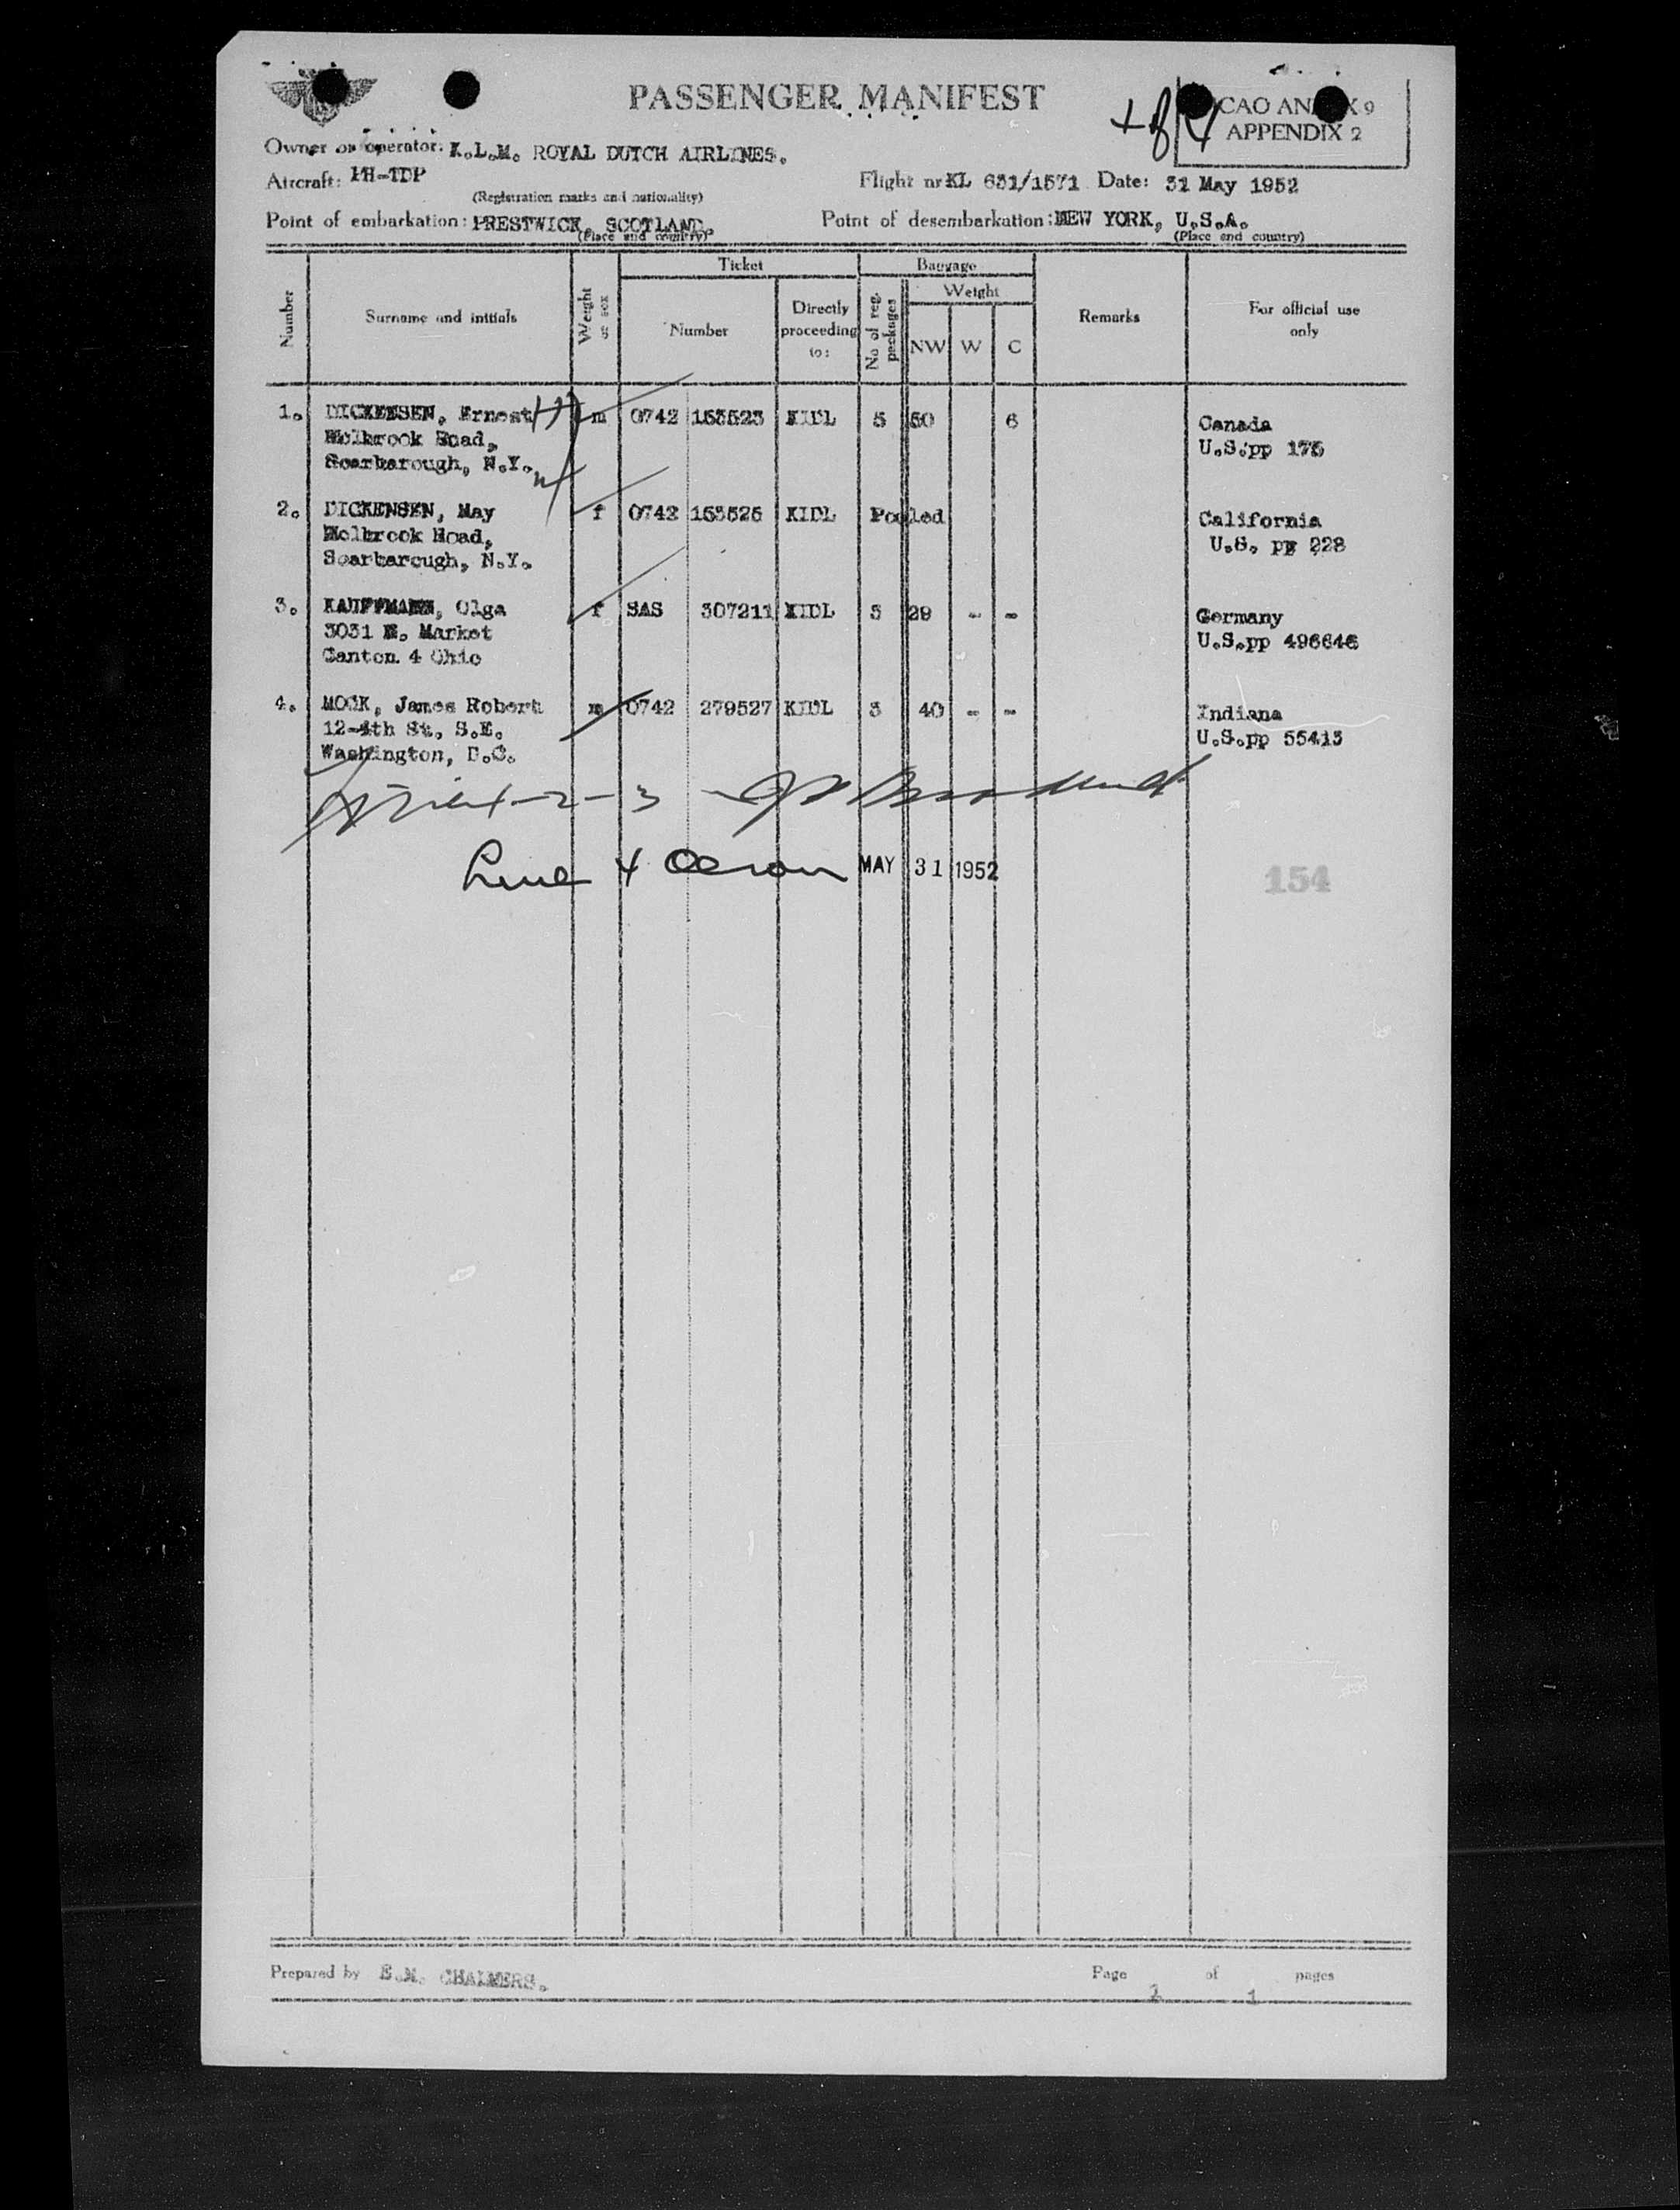 PASSENGER MANIFEST
APPENDIX 2
Owner or operator: K.L.M. ROYAL DUTCH AIRLINES.
Aircraft: PH-TDP Flight nr KL 631/1571 Date: 31 May 1952
(Registration marks and nationality)
Point of embarkation: PRESTWICK, SCOTLAND. Point of desembarkation: NEW YORK, U.S.A.
(Place and country) (Place and country)
Number Surname and initials Weight or sex Ticket Baggage Remarks For official use only
Number Directly proceeding to: No of reg. packages Weight
NW W C
1. DICKENSEN, Ernest m 0742 KIDL 5 50 6 Canada
Holbrook Road, U.S.pp
Scarbarough, N.Y.
2. DICKENSEN, May f 0742 KIDL Pooled California
Holbrook Road, U.S. pp 228
Scarbarough, N.Y.
3. KAUFFMANN, Olga f SAS 307211 KIDL 3 29 - - Germany
3031 E. Market U.S.pp 496646
Canton 4 Ohio
4. MOCK, James Robert m 0742 279527 KIDL 3 40 - - Indiana
12-4th St. S.E. U.S.pp 55413
Washington, D.C.
MAY 31 1952
154
Prepared by E.M. CHALMERS. Page 1 of 1 pages